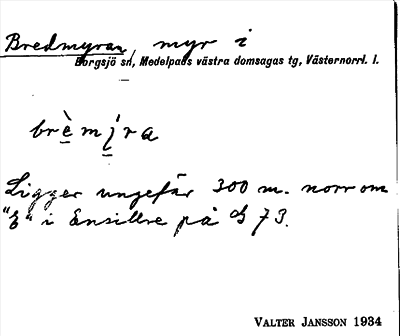 Bredmyran, myr i
Borgsjö sn, Medelpads västra domsagas tg, Västernorrl. l.
brè̱mi̱ra
Ligger ungefär 300 m. norr om
"E" i Ensillre på 73.
VALTER JANSSON 1934